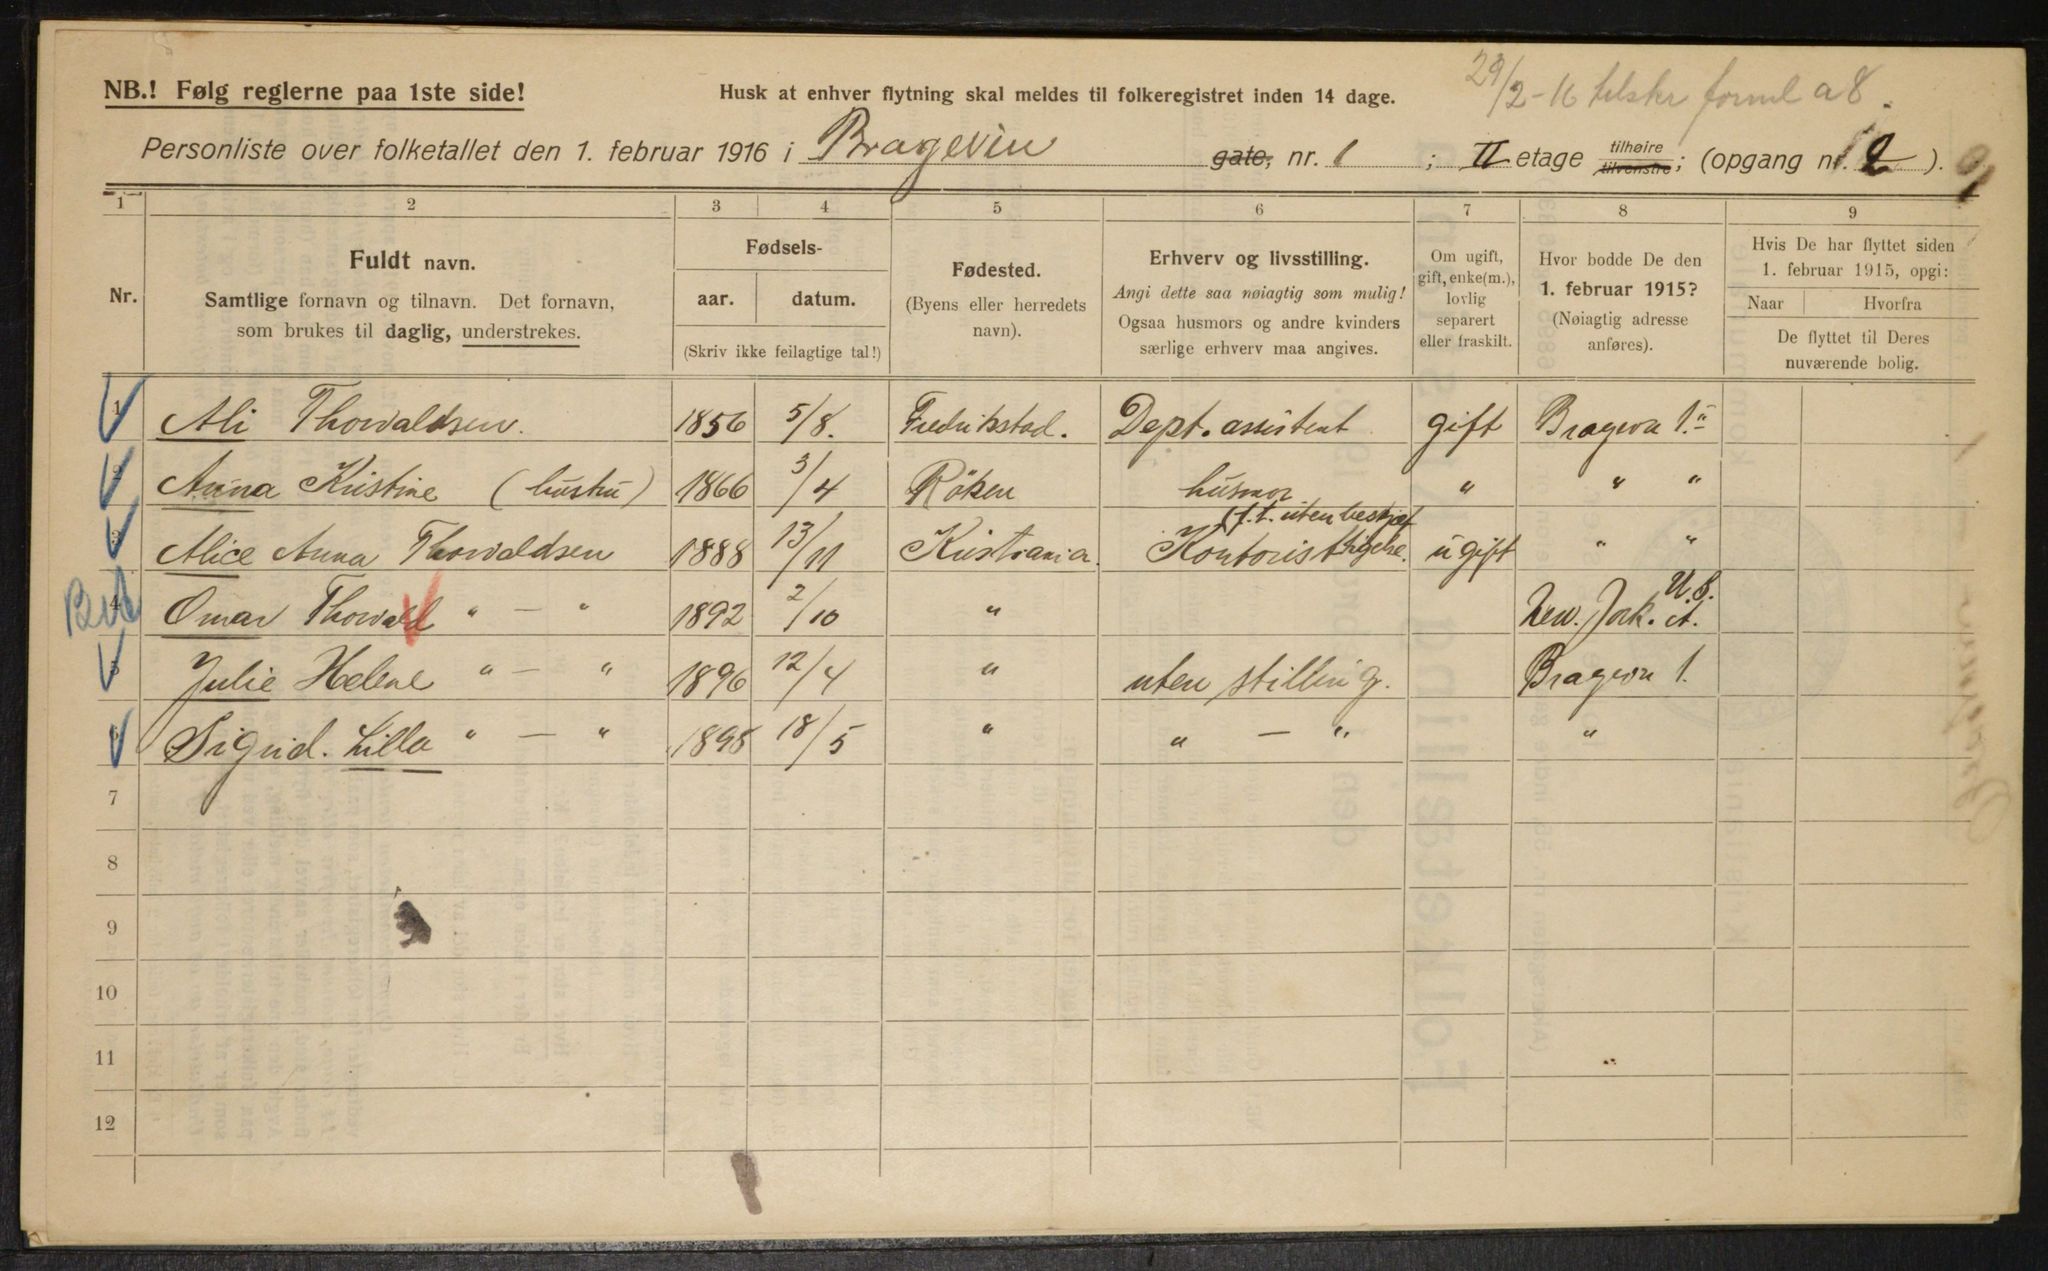 29/2-16 tilskr forml a 8.
NB.! Følg reglerne paa 1ste side!
Husk at enhver flytning skal meldes til folkeregistret inden 14 dage.
Personliste over folketallet den 1. februar 1916 i BrageVin gate, nr. 1 ; II etage tilhøire tilvenstre; (opgang nr. 2 ).
1 2 3 4 5 6 7 8 9
Nr.
Fuldt navn.
Samtlige fornavn og tilnavn. Det fornavn,
som brukes til daglig, understrekes.
Fødsels-
aar. datum.
(Skriv ikke feilagtige tal!)
Fødested.
(Byens eller herredets
navn).
Erhverv og livsstilling.
Angi dette saa nøiagtig som mulig!
Ogsaa husmors og andre kvinders
særlige erhverv maa angives.
Om ugift,
gift, enke(m.),
lovlig
separert
eller fraskilt.
Hvor bodde De den
1. februar 1915?
(Nøiagtig adresse
anføres).
Hvis De har flyttet siden
1. februar 1915, opgi:
Naar Hvorfra
De flyttet til Deres
nuværende bolig.
1 Ali Thowaldsen. 1856 5/8. Fredrikstad. Dept. assistent gift Bragevn 1."
2 Anna Kristine (hustru) 1866 3/4 Röken husmor " " "
3 Alice Anna Thowaldsen 1888 13/11 Kristiania Kontorist (f. t. uten beskjæftigelse. ugift " "
4 Omar Thowald " — " 1892 2/10 " New. York. U.S.A.
5 Julie Helene " — " 1896 12/4 " uten stilling. Bragevn 1.
6 Sigrid. Lilla " — " 1898 18/5 " " — " "
7
8
9
10
11
12